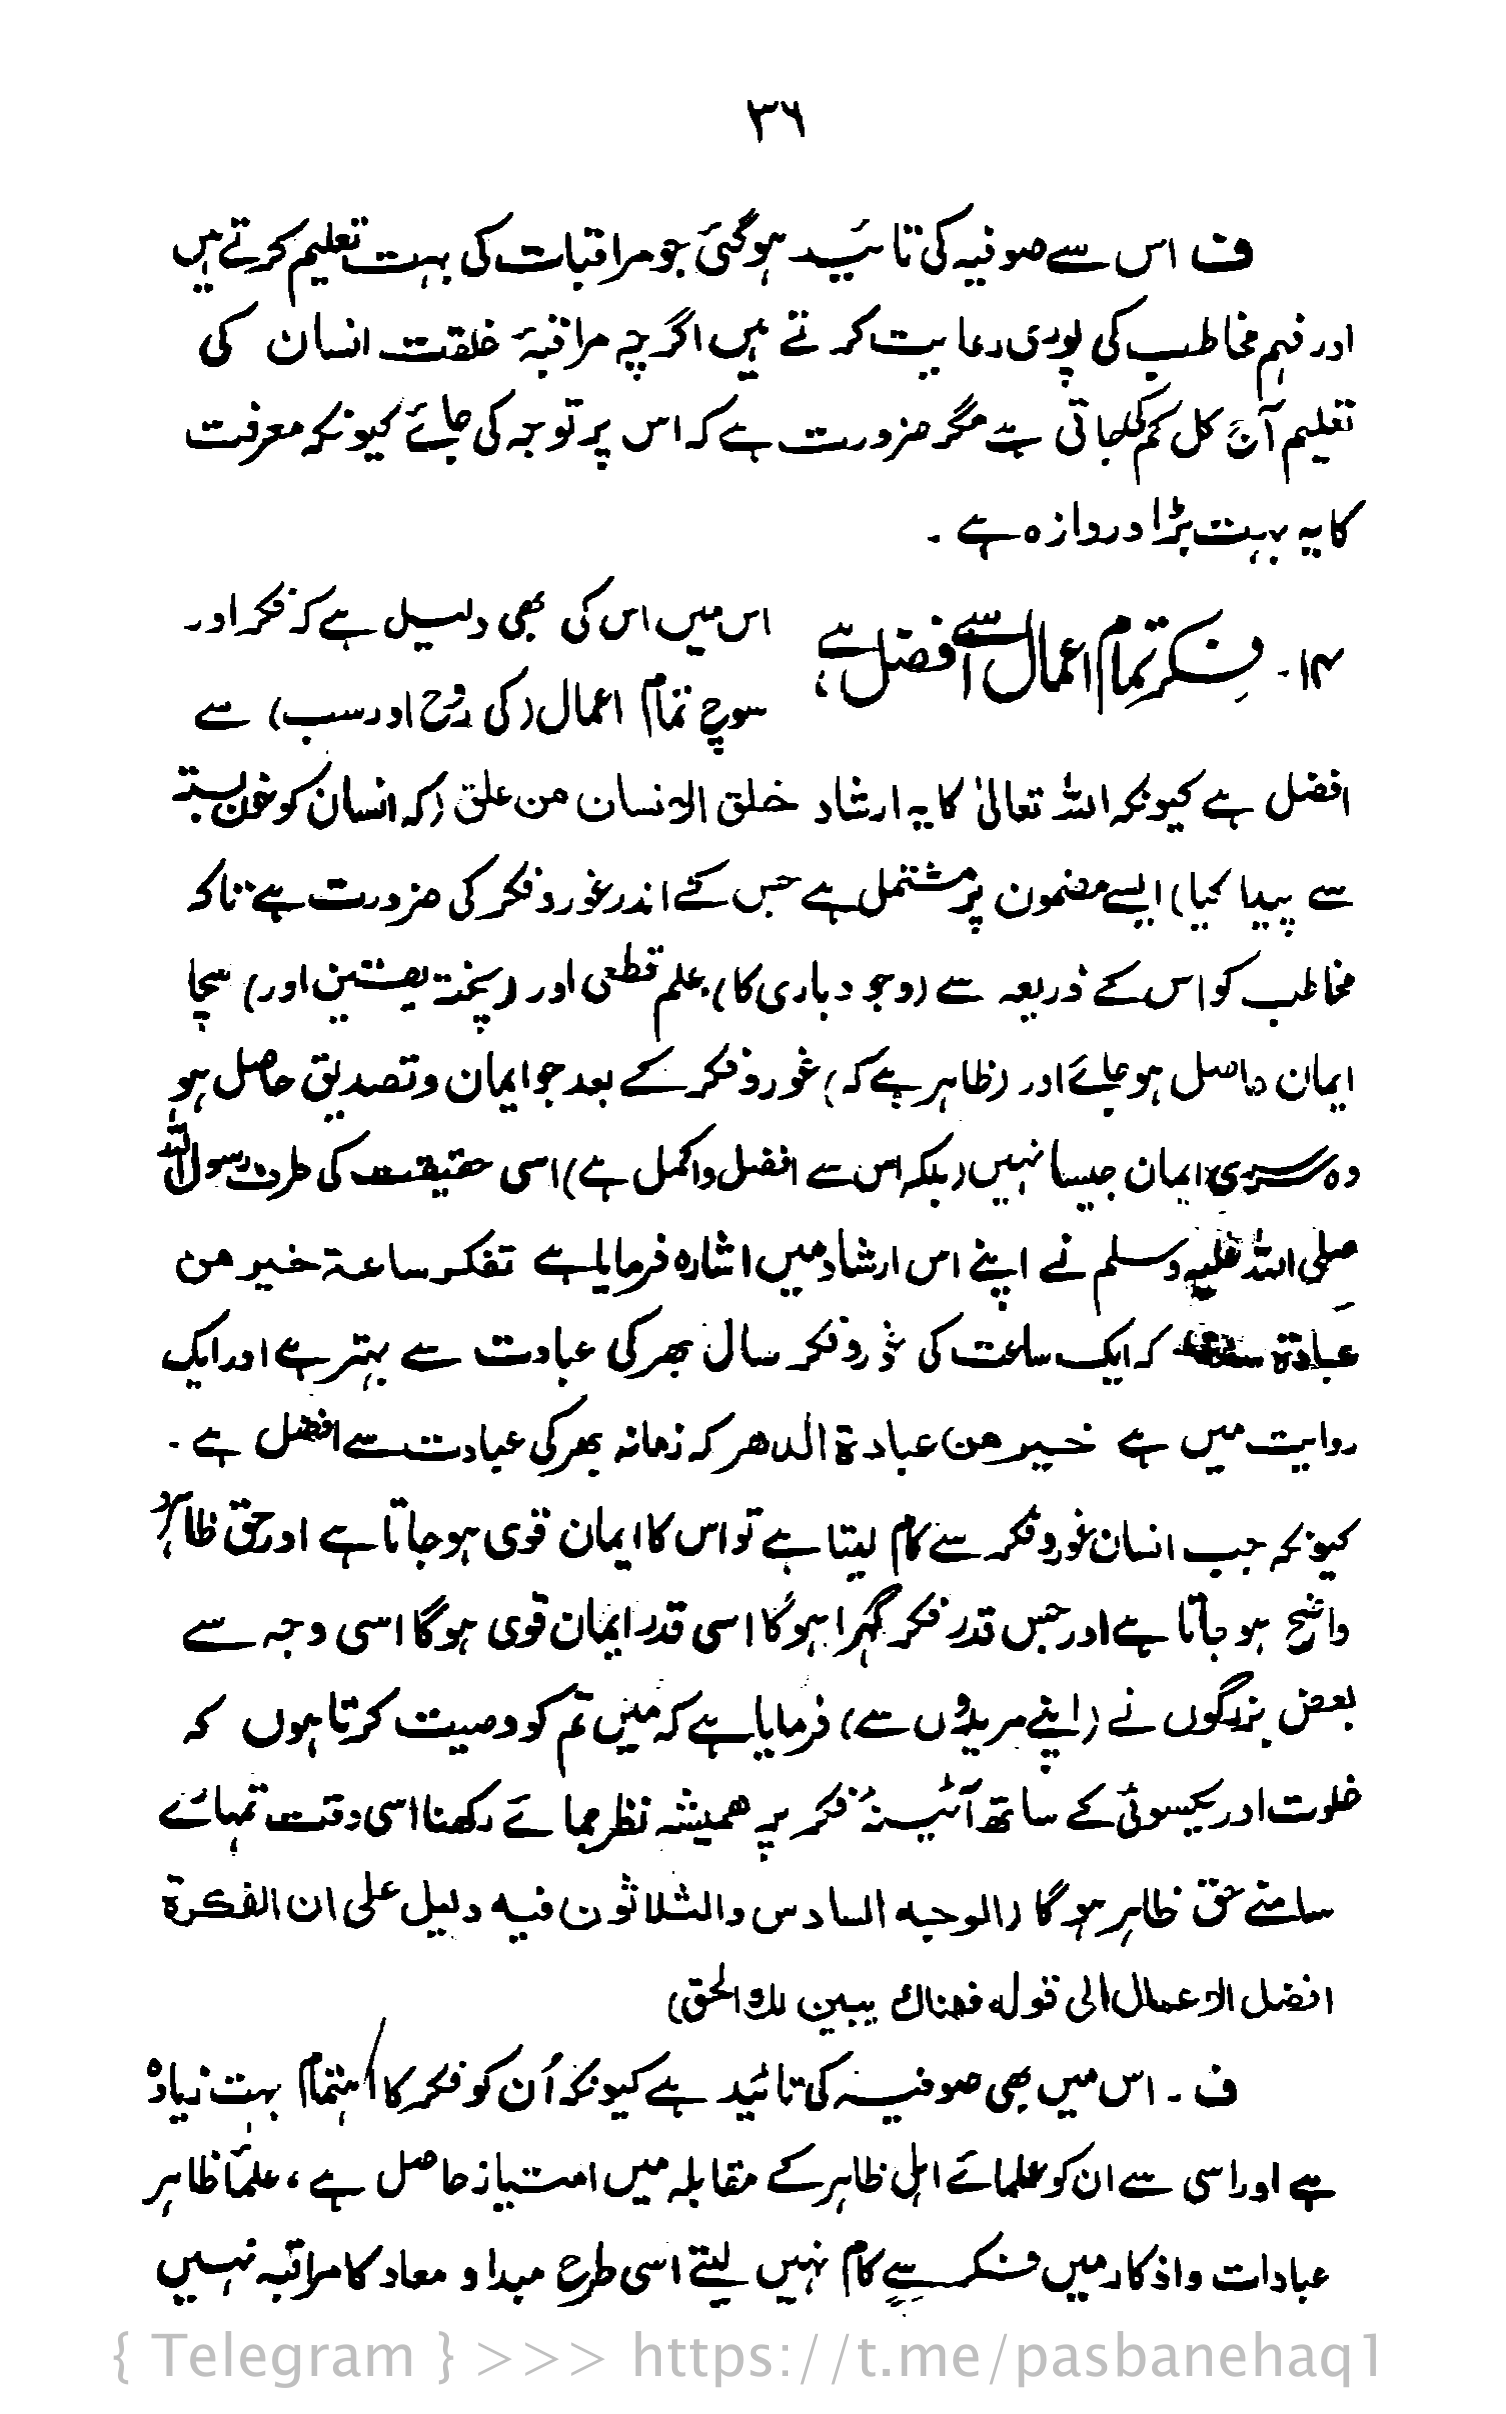 ۳۶
ف اس سے صوفیہ کی تائید ہوگئی جو مراقبات کی بہت تعلیم کرتے ہیں
اور فہم مخاطب کی پوری رعایت کرتے ہیں اگرچہ مراقبۂ خلقت انسان کی
تعلیم آج کل کم کی جاتی ہے مگر ضرورت ہے کہ اس پر توجہ کی جائے کیونکہ معرفت
کا یہ بہت بڑا دروازہ ہے ۔
۱۴۔ فکر تمام اعمال سے افضل ہے، اس میں اس کی بھی دلیل ہے کہ فکر اور
سوچ تمام اعمال (کی روح اور سب) سے
افضل ہے کیونکہ اللہ تعالیٰ کا یہ ارشاد خلق الانسان من علق (کہ انسان کو خون بستہ
سے پیدا کیا) ایسے مضمون پر مشتمل ہے جس کے اندر غور و فکر کی ضرورت ہے تاکہ
مخاطب کو اس کے ذریعہ سے (وجود باری کا) علم قطعی اور (پختہ یقین اور) سچا
ایمان حاصل ہو جائے اور (ظاہر ہے کہ) غور و فکر کے بعد جو ایمان و تصدیق حاصل ہو
وہ سرسری ایمان جیسا نہیں (بلکہ اس سے افضل و اکمل ہے) اسی حقیقت کی طرف رسول اللہ
صلی اللہ علیہ وسلم نے اپنے اس ارشاد میں اشارہ فرمایا ہے تفکر ساعۃ خیر من
عبادۃ سنۃ کہ ایک ساعت کی غور و فکر سال بھر کی عبادت سے بہتر ہے اور ایک
روایت میں ہے خیر من عبادۃ الدھر کہ زمانہ بھر کی عبادت سے افضل ہے ۔
کیونکہ جب انسان غور و فکر سے کام لیتا ہے تو اس کا ایمان قوی ہو جاتا ہے اور حق ظاہر و
واضح ہو جاتا ہے اور جس قدر فکر گہرا ہوگا اسی قدر ایمان قوی ہوگا اسی وجہ سے
بعض بزرگوں نے (اپنے مریدوں سے) فرمایا ہے کہ میں تم کو وصیت کرتا ہوں کہ
خلوت اور یکسوئی کے ساتھ آئینۂ فکر پر ہمیشہ نظر جمائے رکھنا اسی وقت تمہارے
سامنے حق ظاہر ہوگا (الوجہ السادس والثلاثون فیہ دلیل علی ان الفکرۃ
افضل الاعمال الی قولہ فھناك یبین لك الحق)
ف ۔ اس میں بھی صوفیہ کی تائید ہے کیونکہ اُن کو فکر کا اہتمام بہت زیادہ
ہے اور اسی سے ان کو علمائے اہل ظاہر کے مقابلہ میں امتیاز حاصل ہے، علماء ظاہر
عبادات و اذکار میں فکر سے کام نہیں لیتے اسی طرح مبدا و معاد کا مراقبہ نہیں
{ Telegram } >>> https://t.me/pasbanehaq1